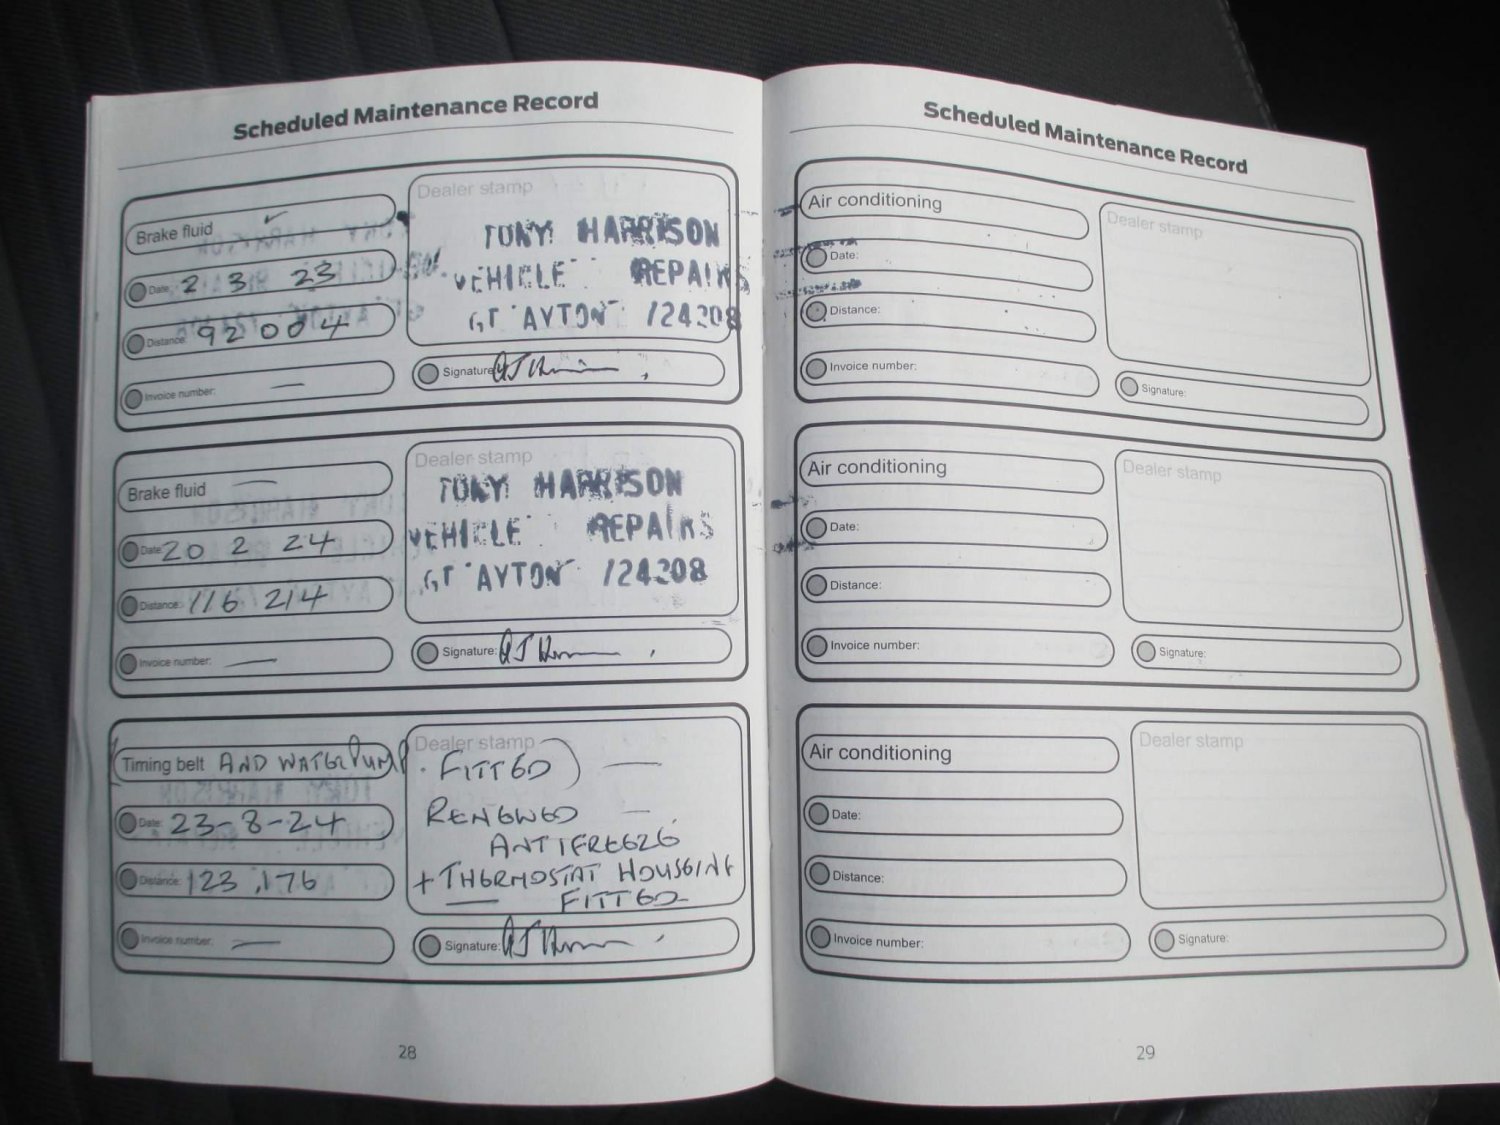 Scheduled Maintenance Record
Brake fluid ✓
Date: 2 3 23
Distance: 92 004
Invoice number: —
Dealer stamp
TONY HARRISON
VEHICLE REPAIRS
GT AYTON 724208
Signature:
Brake fluid —
Date: 20 2 24
Distance: 116 214
Invoice number: —
Dealer stamp
TONY HARRISON
VEHICLE REPAIRS
GT AYTON 724208
Signature:
Timing belt AND WATERPUMP
Date: 23-8-24
Distance: 123,176
Invoice number: —
Dealer stamp
FITTED) —
RENEWED —
ANTIFREEZE
+ THERMOSTAT HOUSEING
FITTED
Signature:
28
Scheduled Maintenance Record
Air conditioning
Date:
Distance:
Invoice number:
Dealer stamp
Signature:
Air conditioning
Date:
Distance:
Invoice number:
Dealer stamp
Signature:
Air conditioning
Date:
Distance:
Invoice number:
Dealer stamp
Signature:
29